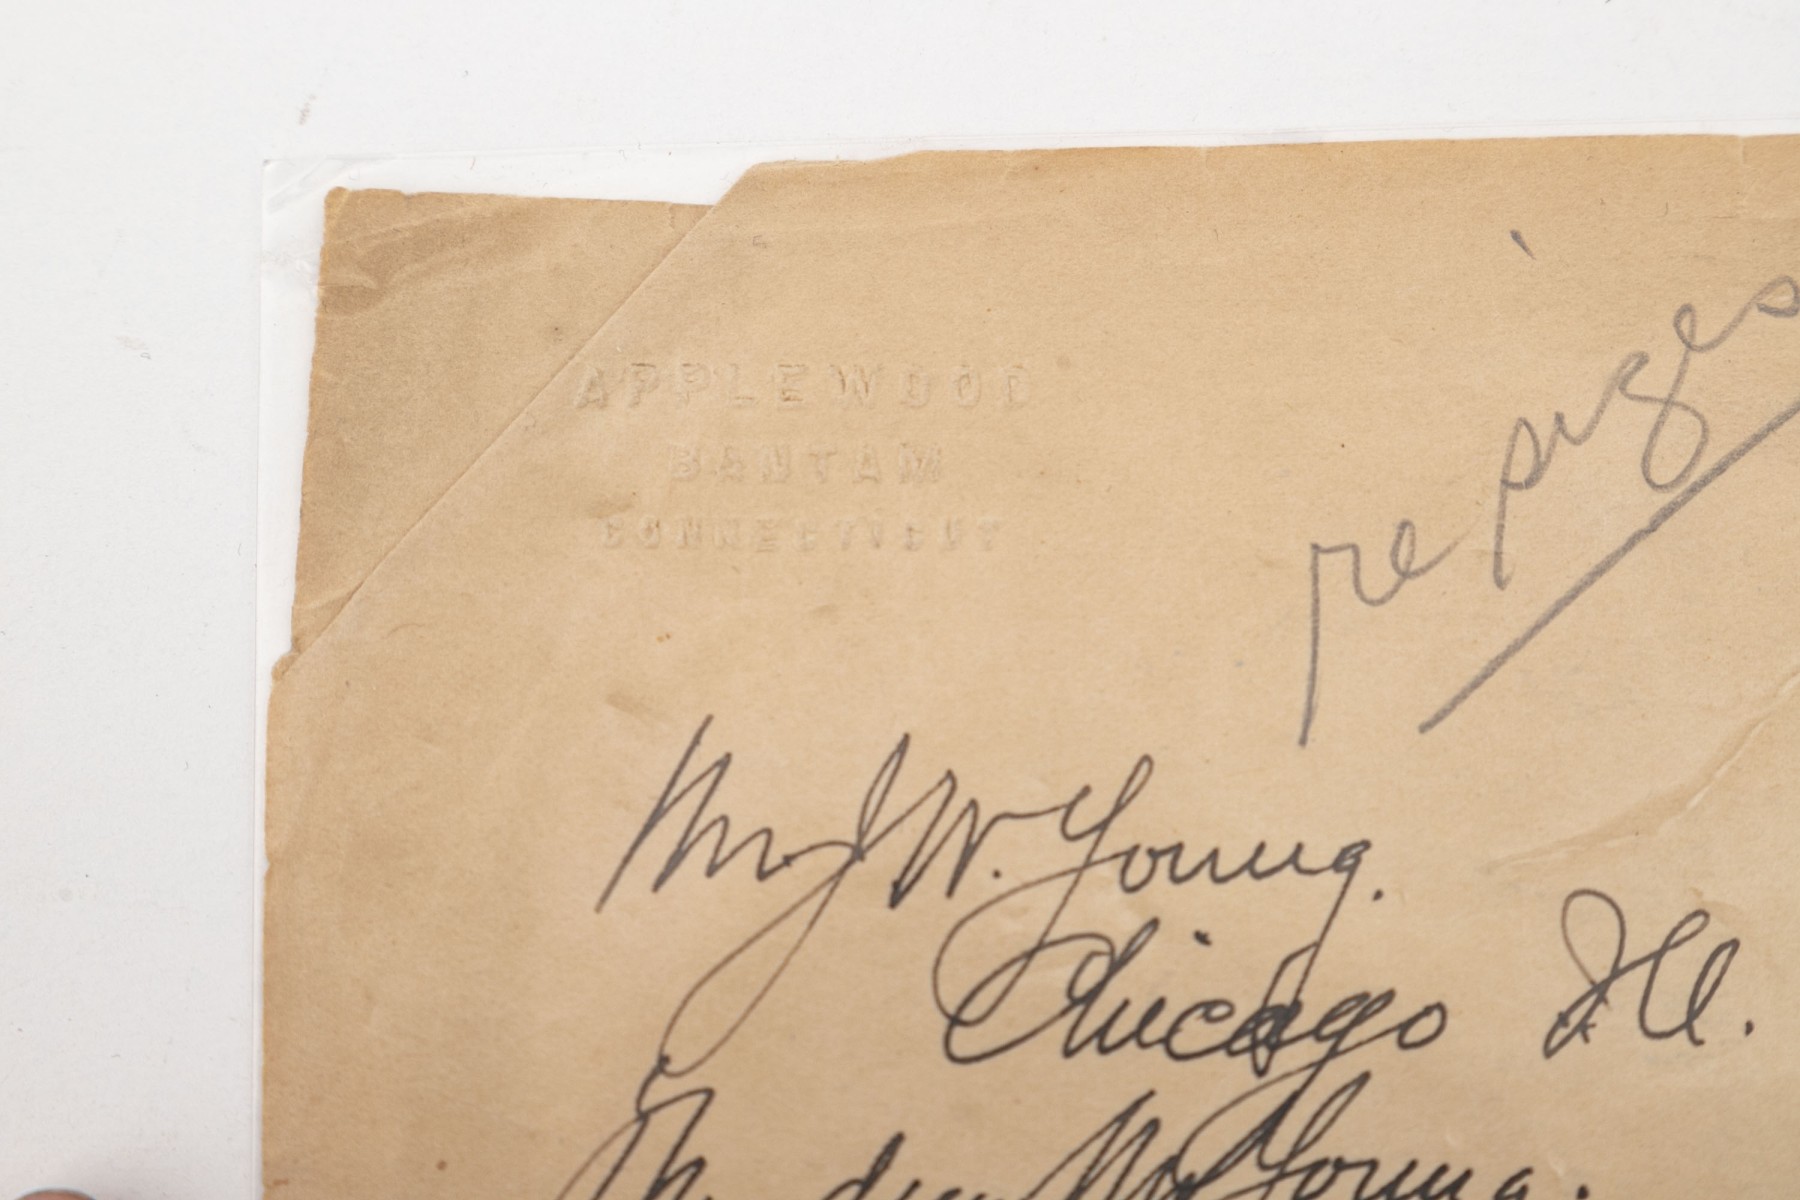 APPLEWOOD
BANTAM
CONNECTICUT
re sizes
Mr J W. Young.
Chicago Ill.
My dear Mr Young.